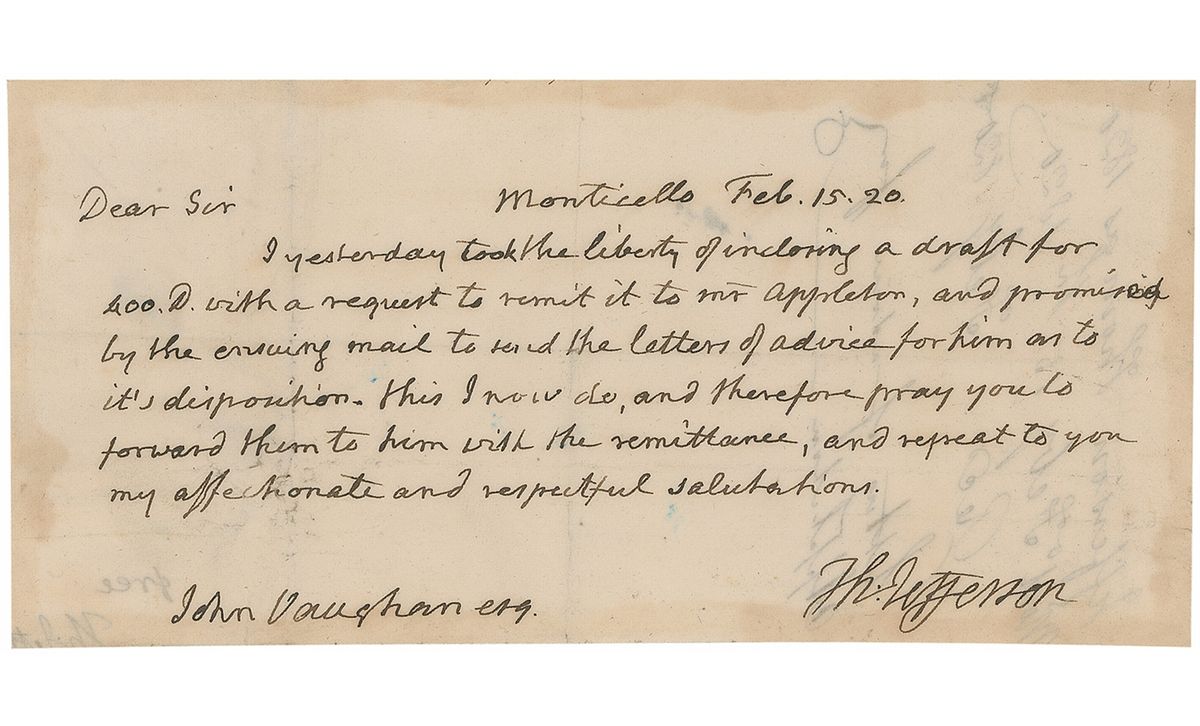 Dear Sir Monticello Feb. 15. 20.
I yesterday took the liberty of inclosing a draft for
400. D. with a request to remit it to mr Appleton, and promising
by the ensuing mail to send the letters of advice for him as to
it's disposition. this I now do, and therefore pray you to
forward them to him with the remittance, and repeat to you
my affectionate and respectful salutations.
Th: Jefferson
John Vaughan esq.
free